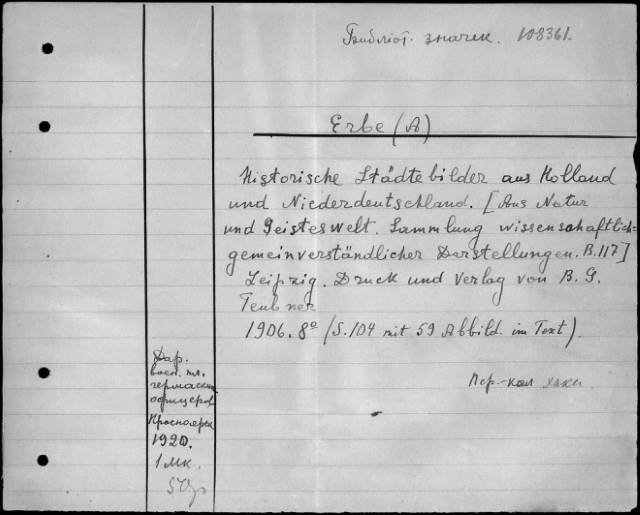 Библіот. значек. 108361.
Erbe (A)
Historische Städtebilder aus Holland
und Niederdeutschland. [Aus Natur
und Geisteswelt. Sammlung wissenschaftlich-
gemeinverständlicher Darstellungen. B. 117]
Leipzig. Druck und Verlag von B. G.
Teubner
1906. 8º (S. 104 mit 59 Abbild. im Text).
Пер.-кол
Дар.
воен. пл.
германск.
офицеров
Красноярск
1920.
1 мк.